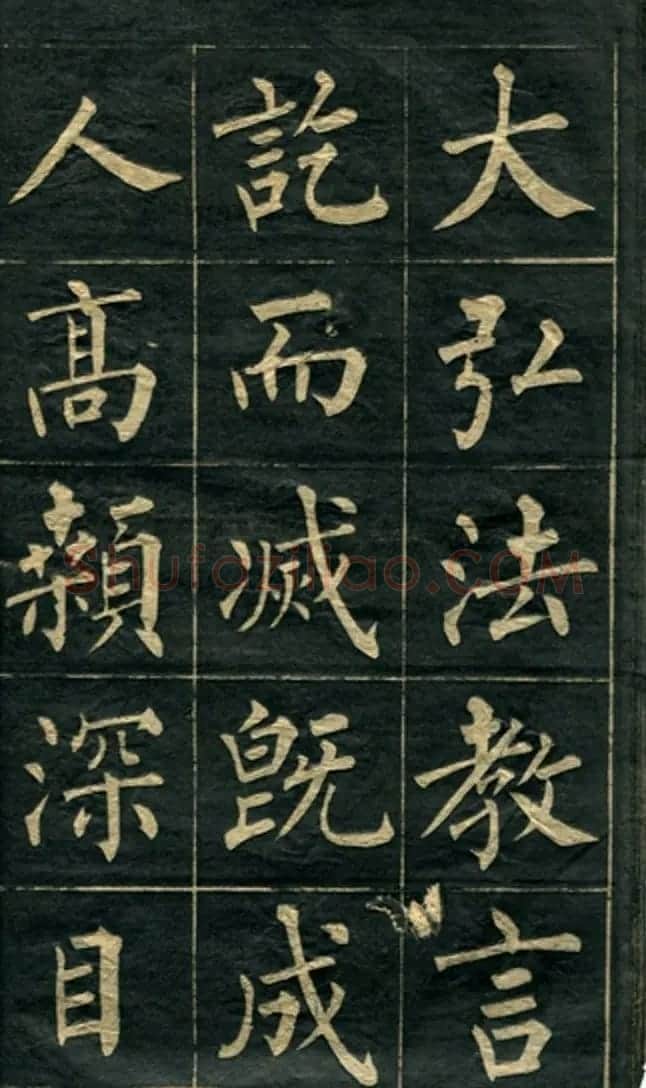 大弘法教言
訖而滅既成
人高顙深目
Shufaziliao.COM